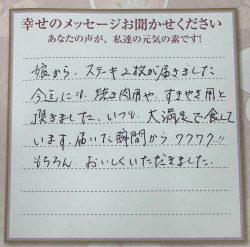 幸せのメッセージお聞かせください
あなたの声が、私達の元気の素です!
娘から、ステーキ2枚が届きました
今迄にも、焼き肉用や、すきやき用と
頂きました、いつも、大満足で食して
います。届いた瞬間からワクワク!!
もちろん、おいしくいただきました。